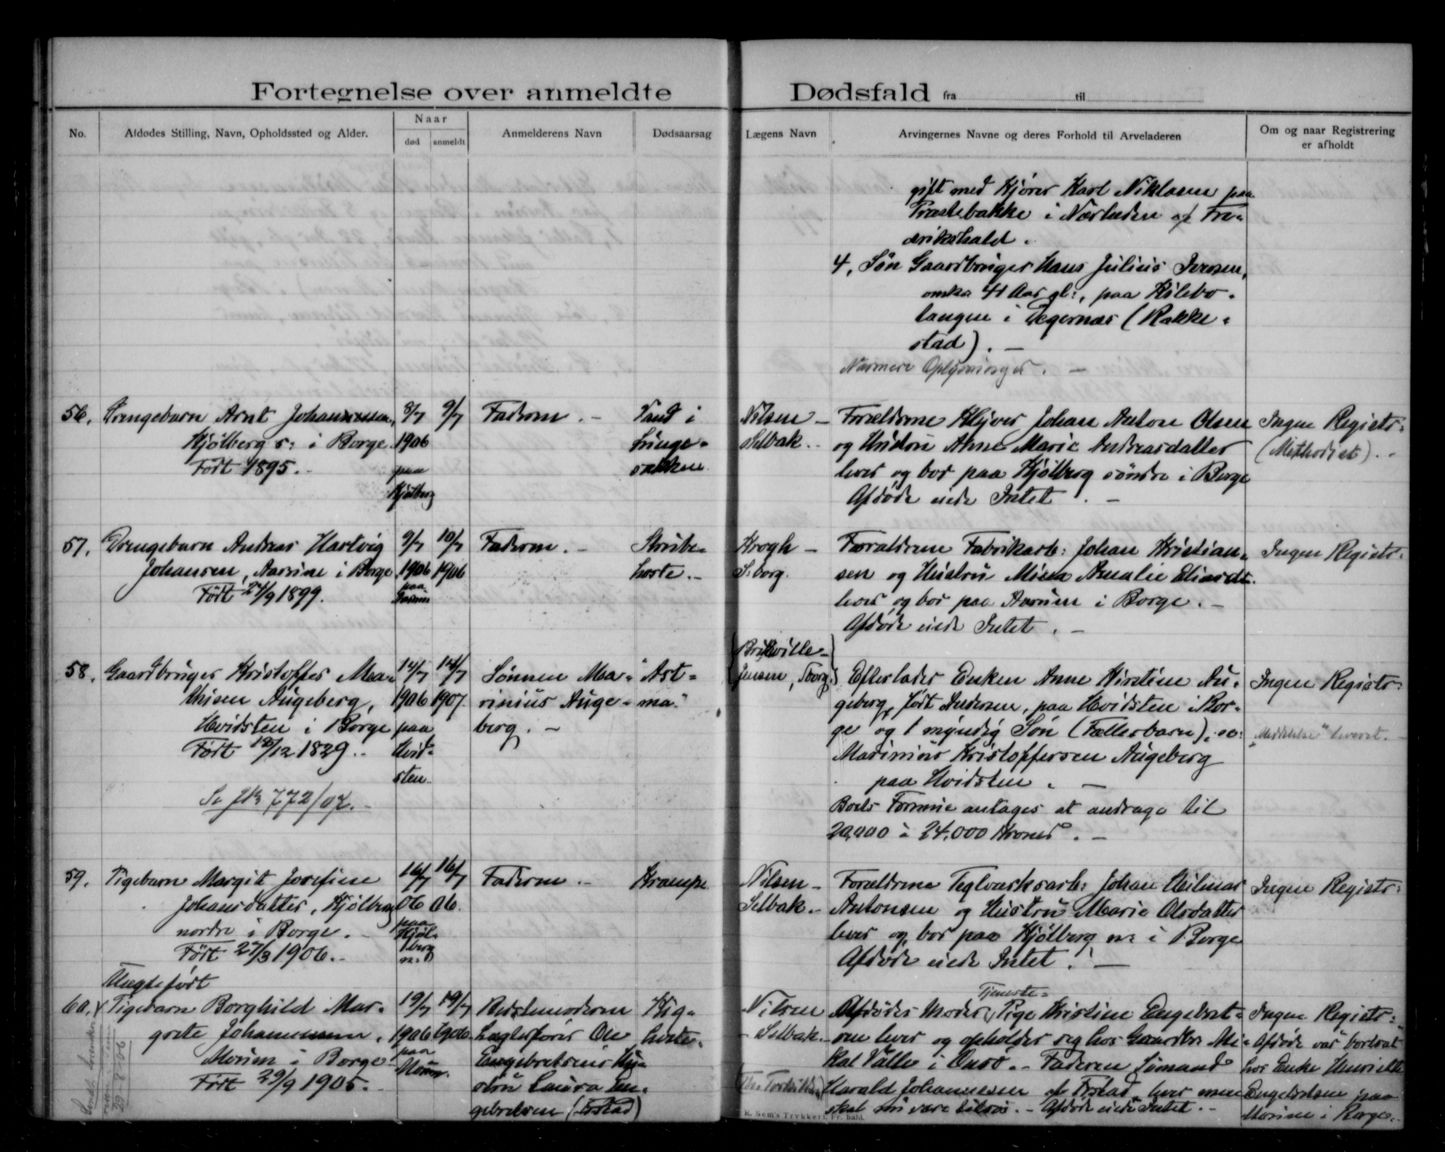 Fortegnelse over anmeldte Dødsfald fra til
No. Afdødes Stilling, Navn, Opholdssted og Alder. Naar død anmeldt Anmelderens Navn Dødsaarsag Lægens Navn Arvingernes Navne og deres Forhold til Arveladeren Om og naar Registrering er afholdt
gift med Kjører Karl Niklasen paa
Præstebakke i Nærheden af Fre-
drikshald.
4, Søn Gaardbruger Hans Julius Iversen,
omkr 41 Aar gl:, paa
i Degernæs (Rakke-
stad). —
Nærmere Oplysninger. —
56. Drengebarn Arnt Johannessen,
Kjølberg s: i Borge
Født 1895.
8/7 1906 paa Kjølberg
9/7
Faderen. —
Vand i
Linge-
sækken
Nilsen —
Selbak.
Forældrene Kjører Johan Anton Olsen
og Hustru Anne Marie Andreasdatter
lever og bor paa Kjølberg søndre i Borge
Afdøde eiede Intet. —
Ingen Registr:
(Methodist).
57. Drengebarn Andreas Hartvig
Johansen, Aarum i Borge
Født 24/9 1899.
9/7 1906 paa
10/7 1906
Faderen. —
Strube-
hoste. —
Krogh —
S:borg.
Forældrene Fabrikarb: Johan Kristian-
sen og Hustru Mina Amalie
lever og bor paa Aarum i Borge. —
Afdøde eiede Intet. —
Ingen Registr:
58. Gaardbruger Kristoffer Ma-
thisen Augeberg,
Hvidsten i Borge
Født 12/12 1829.
Se JN 772/07. —
14/7 1906 paa Hvid-
sten.
14/7 1907
Sønnen Ma-
rinius Auge-
berg. —
"Ast-
ma."
Jensen, Torp.
Efterlader Enken Anne Kirstine Au-
geberg, født Andersen, paa Hvidsten i Bor-
ge og 1 myndig Søn (Fællesbarn),
Marinius Kristoffersen Augeberg
paa Hvidsten. —
Boets Formue antages at andrage til
20,000 à 24,000 Kroner. —
Ingen Registr:
"Meddelelse" leveret. —
59. Pigebarn Margit Josefine
Johansdatter, Kjølberg
nordre i Borge. —
Født 27/3 1906. —
16/7 06 paa Kjøl-
berg n:
16/7 06.
Faderen —
Krampe
Nilsen —
Selbak. —
Forældrene Teglværksarb: Johan Hilmar
Antonsen og Hustru Marie Olsdatter
lever og bor paa Kjølberg n: i Borge
Afdøde eiede Intet. —
Ingen Registr:
Uægtefødt
60. Pigebarn Borghild Mar-
grete Johannessen,
Moum i Borge
Født 29/9 1905. —
19/7 1906 paa Moum
19/7 1906
Bedstemoderen
Ole
Engebretsens Hu-
stru Laura En-
gebretsen
Kig-
hoste-
Nilsen
— Selbak.
Afdødes Moder, Tjeneste-
Pige Kristine Engebret-
sen lever og opholder sig hos Gaardbr: Mi-
kal Valle i Onsø. — Faderen Sømand
Harald Johannessen af lever men
skal nu være tilsøs. — Afdøde eiede Intet. —
Ingen Registr:
Afdøde var bortsat
hos Enke Henriette
Engebretsen paa
Moum i Borge. —
R. Sem's Trykkeri, Fr.hald.